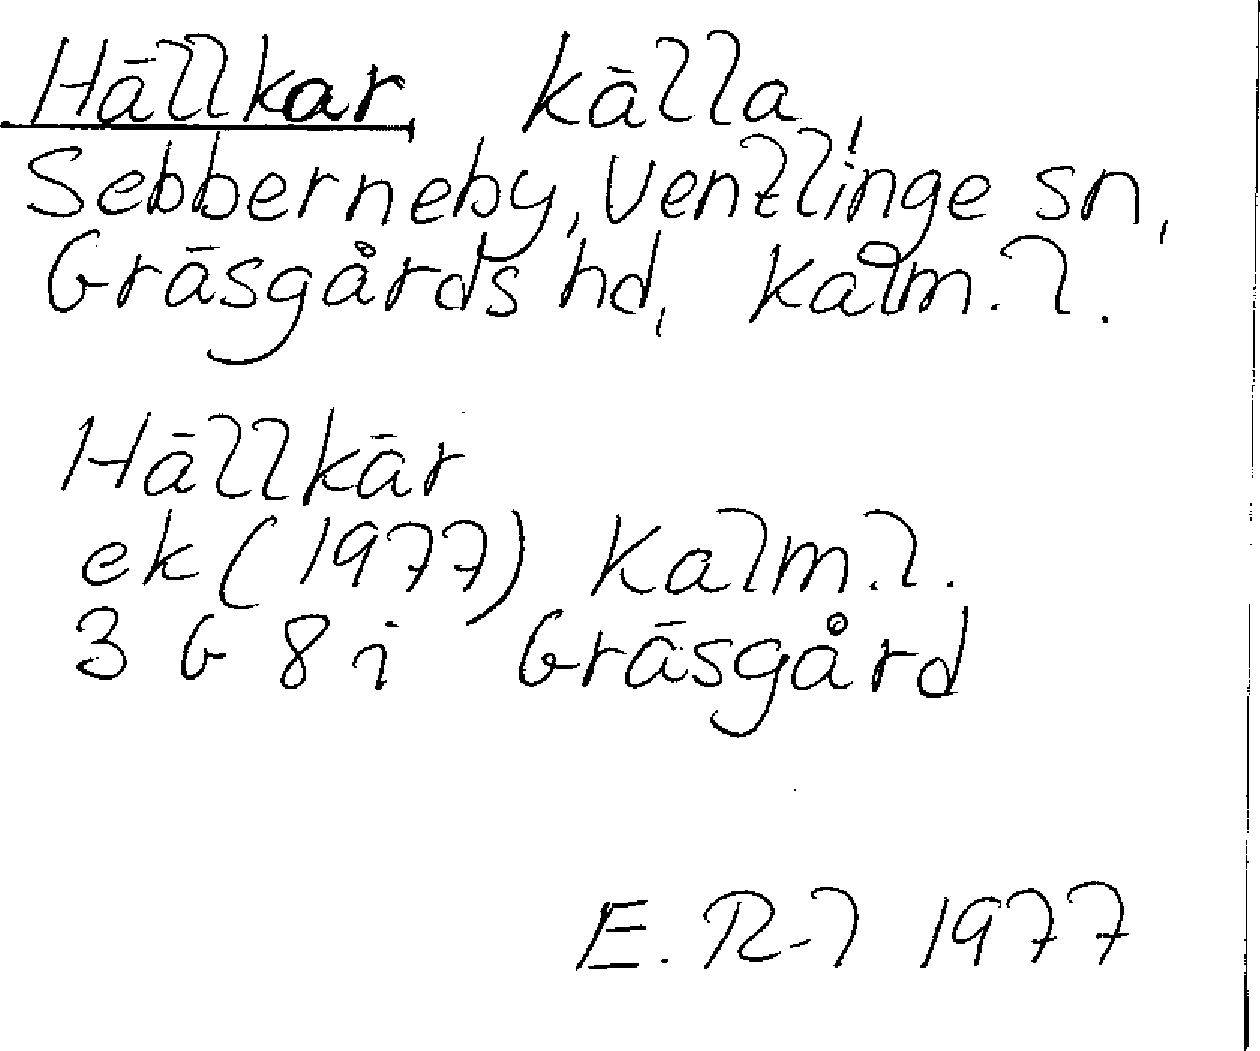 Hällkar, källa,
Sebberneby, Ventlinge sn,
Gräsgårds hd, Kalm. l.
Hällkär
ek (1977) Kalm. l.
3 G 8 i Gräsgård
E. R-l 1977